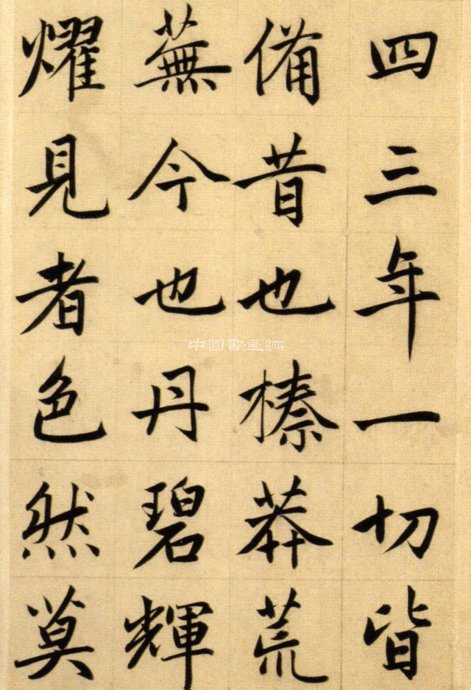 四三年一切皆
備昔也榛莽荒
蕪今也丹碧輝
燿見者色然莫
中國書畫網